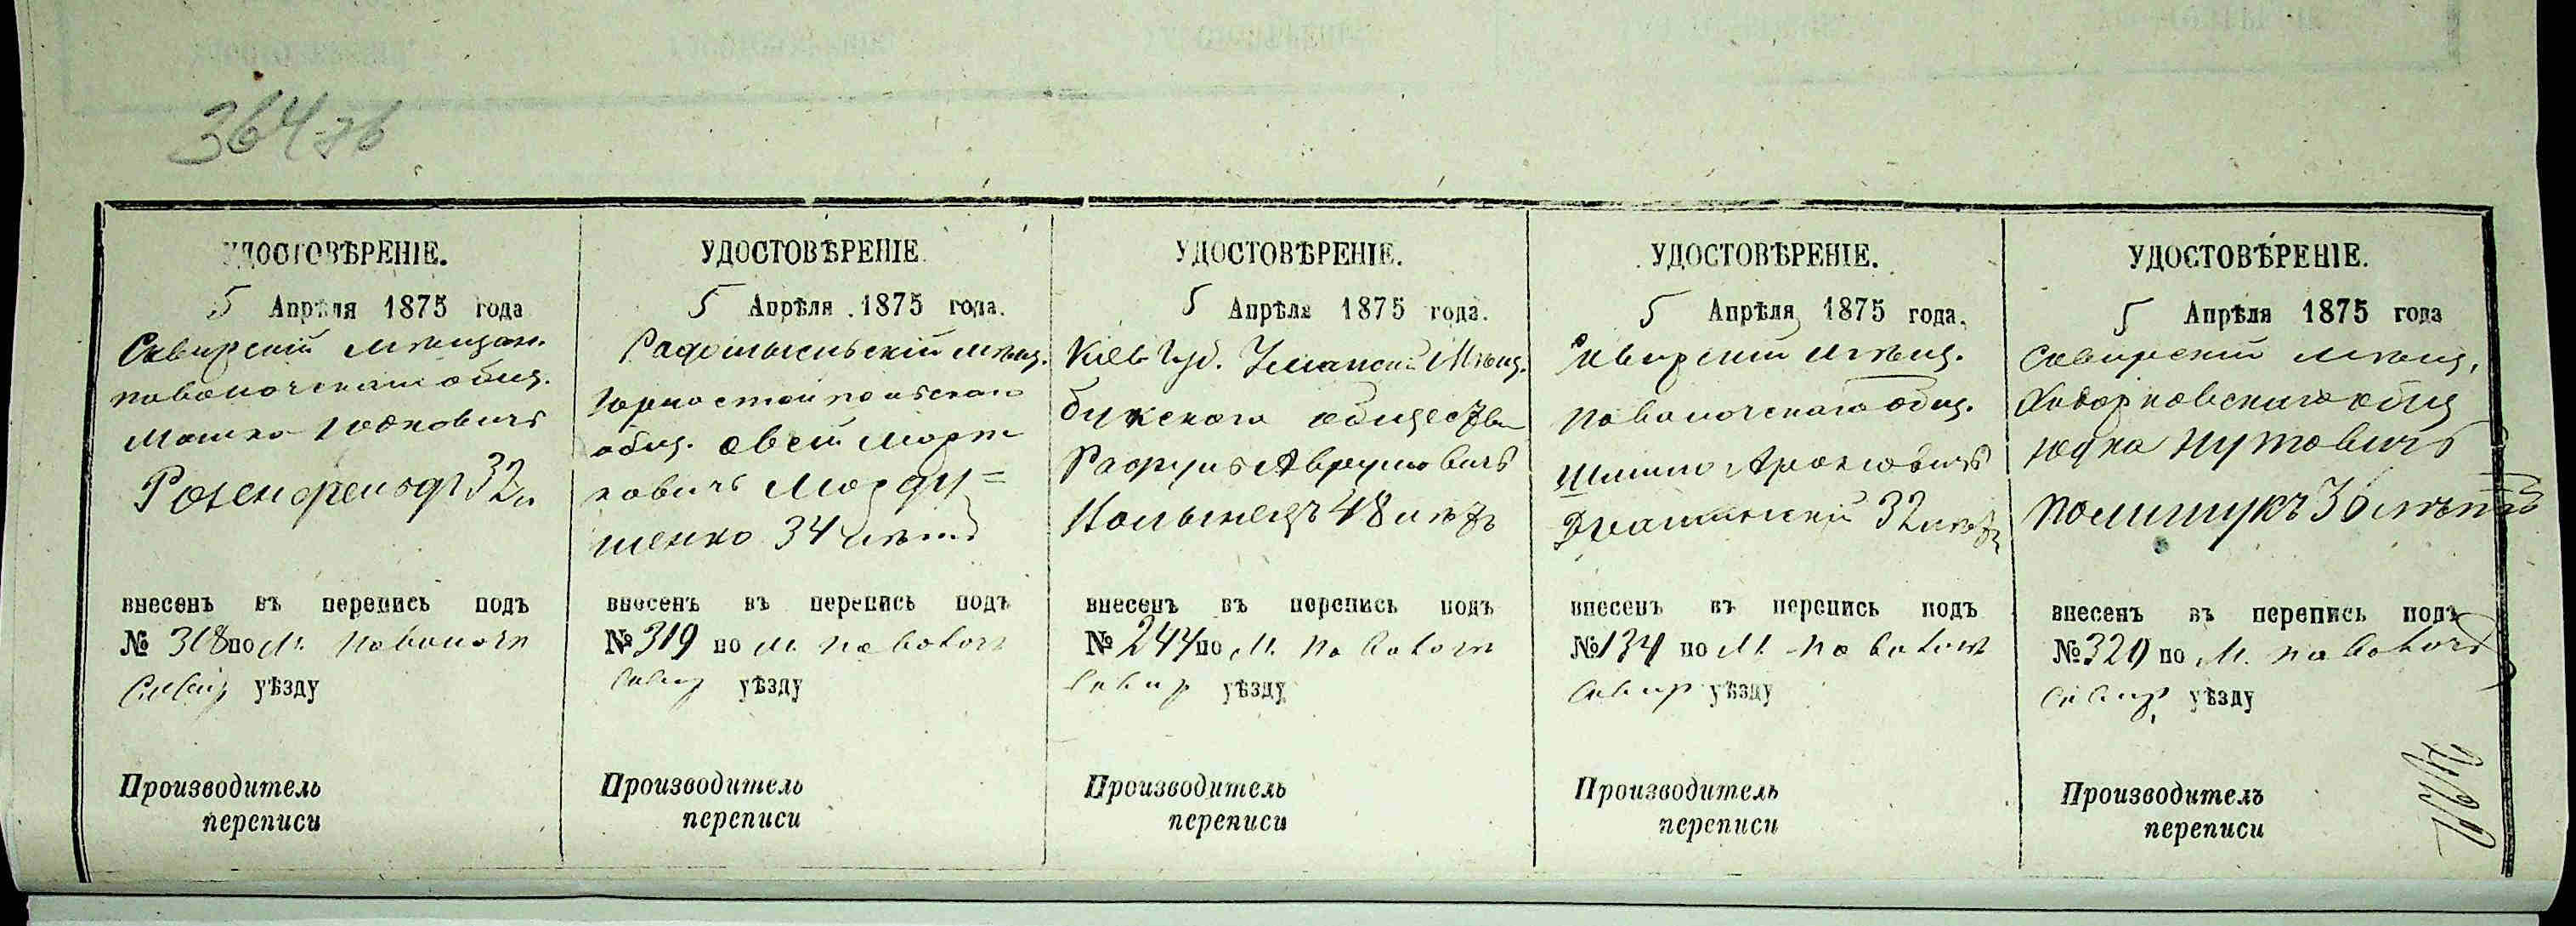 364 зв
УДОСТОВѢРЕНІЕ.
5 Апрѣля 1875 года
Сквирскій мѣщан.
паволочскаго общ.
Мошко Іосковичъ
Розенфельдъ 32 л
внесенъ въ перепись подъ
№ 318 по м. Паволочи
Сквир уѣзду
Производитель
переписи
УДОСТОВѢРЕНІЕ
5 Апрѣля 1875 года.
Радомысльскій мѣщ.
Горностайпольскаго
общ. Овсій Морт
ковичъ Морду=
шенко 34 лѣтъ
внесенъ въ перепись подъ
№ 319 по м. Паволоч
Сквир уѣзду
Производитель
переписи
УДОСТОВѢРЕНІЕ.
5 Апрѣля 1875 года.
Кіев Губ. Уманскій Мѣщ.
букскаго общества
Рафулъ Аврумовичъ
48 лѣтъ
внесенъ въ перепись подъ
№ 244 по М. Паволочи
Сквир уѣзду
Производитель
переписи
УДОСТОВѢРЕНІЕ.
5 Апрѣля 1875 года.
Сквирскій мѣщ.
паволочскаго общ.
32 лѣтъ
внесенъ въ перепись подъ
№ 134 по М. Паволочи
Сквир уѣзду
Производитель
переписи
УДОСТОВѢРЕНІЕ.
5 Апрѣля 1875 года
Сквирскій мѣщ.
Ходорковскаго общ
Юдка Нутовичъ
Полищукъ 30 лѣтъ
внесенъ въ перепись подъ
№ 320 по М. Паволочѣ
Сквир, уѣзду
Производитель
переписи